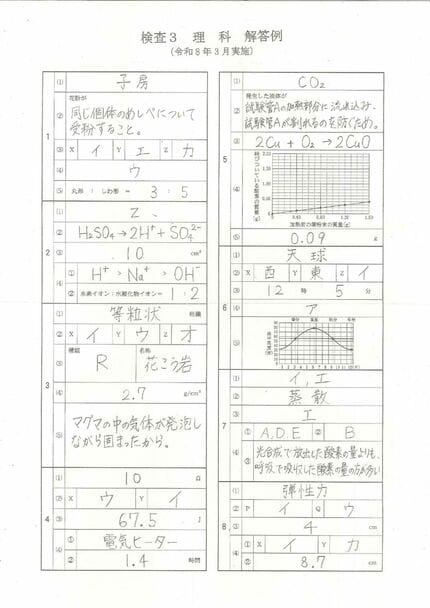 検査3 理 科 解答例
(令和8年3月実施)
1
① 子房
② 花粉が
同じ個体のめしべについて
受粉すること。
③ X イ Y エ Z カ
④ ウ
⑤ 丸形 : しわ形 = 3 : 5
2
① Z
② H₂SO₄→2H⁺+SO₄²⁻
③ 10 cm³
④ ① H⁺ > Na⁺ > OH⁻
② 水素イオン:水酸化物イオン= 1 : 2
3
① 等粒状 組織
② X イ Y ウ Z オ
③ 種類 R 名称 花こう岩
④ 2.7 g/cm³
⑤ マグマの中の気体が発泡し
ながら固まったから。
4
① 10 Ω
② X ウ Y イ
③ 67.5 J
④ ① 電気ヒーター
② 1.4 時間
5
① CO₂
② 発生した液体が
試験管Aの加熱部分に流れ込み、
試験管Aが割れるのを防ぐため。
③ 2Cu + O₂ → 2CuO
④
加熱前の銅粉末の質量〔g〕
⑤ 0.09 g
6
① 天球
② X 西 Y 東 Z イ
③ 12 時 5 分
④ ア
⑤
1 2 3 4 5 6 7 8 9 10 11 12(月)
7
① イ,エ
② 蒸散
③ エ
④ ① A,D,E ② B
③ 光合成で放出した酸素の量よりも、
呼吸で吸収した酸素の量の方が多い
8
① 弾性力
② P イ Q ウ
③ 4 cm
④ ① X イ Y カ
② 8.7 cm